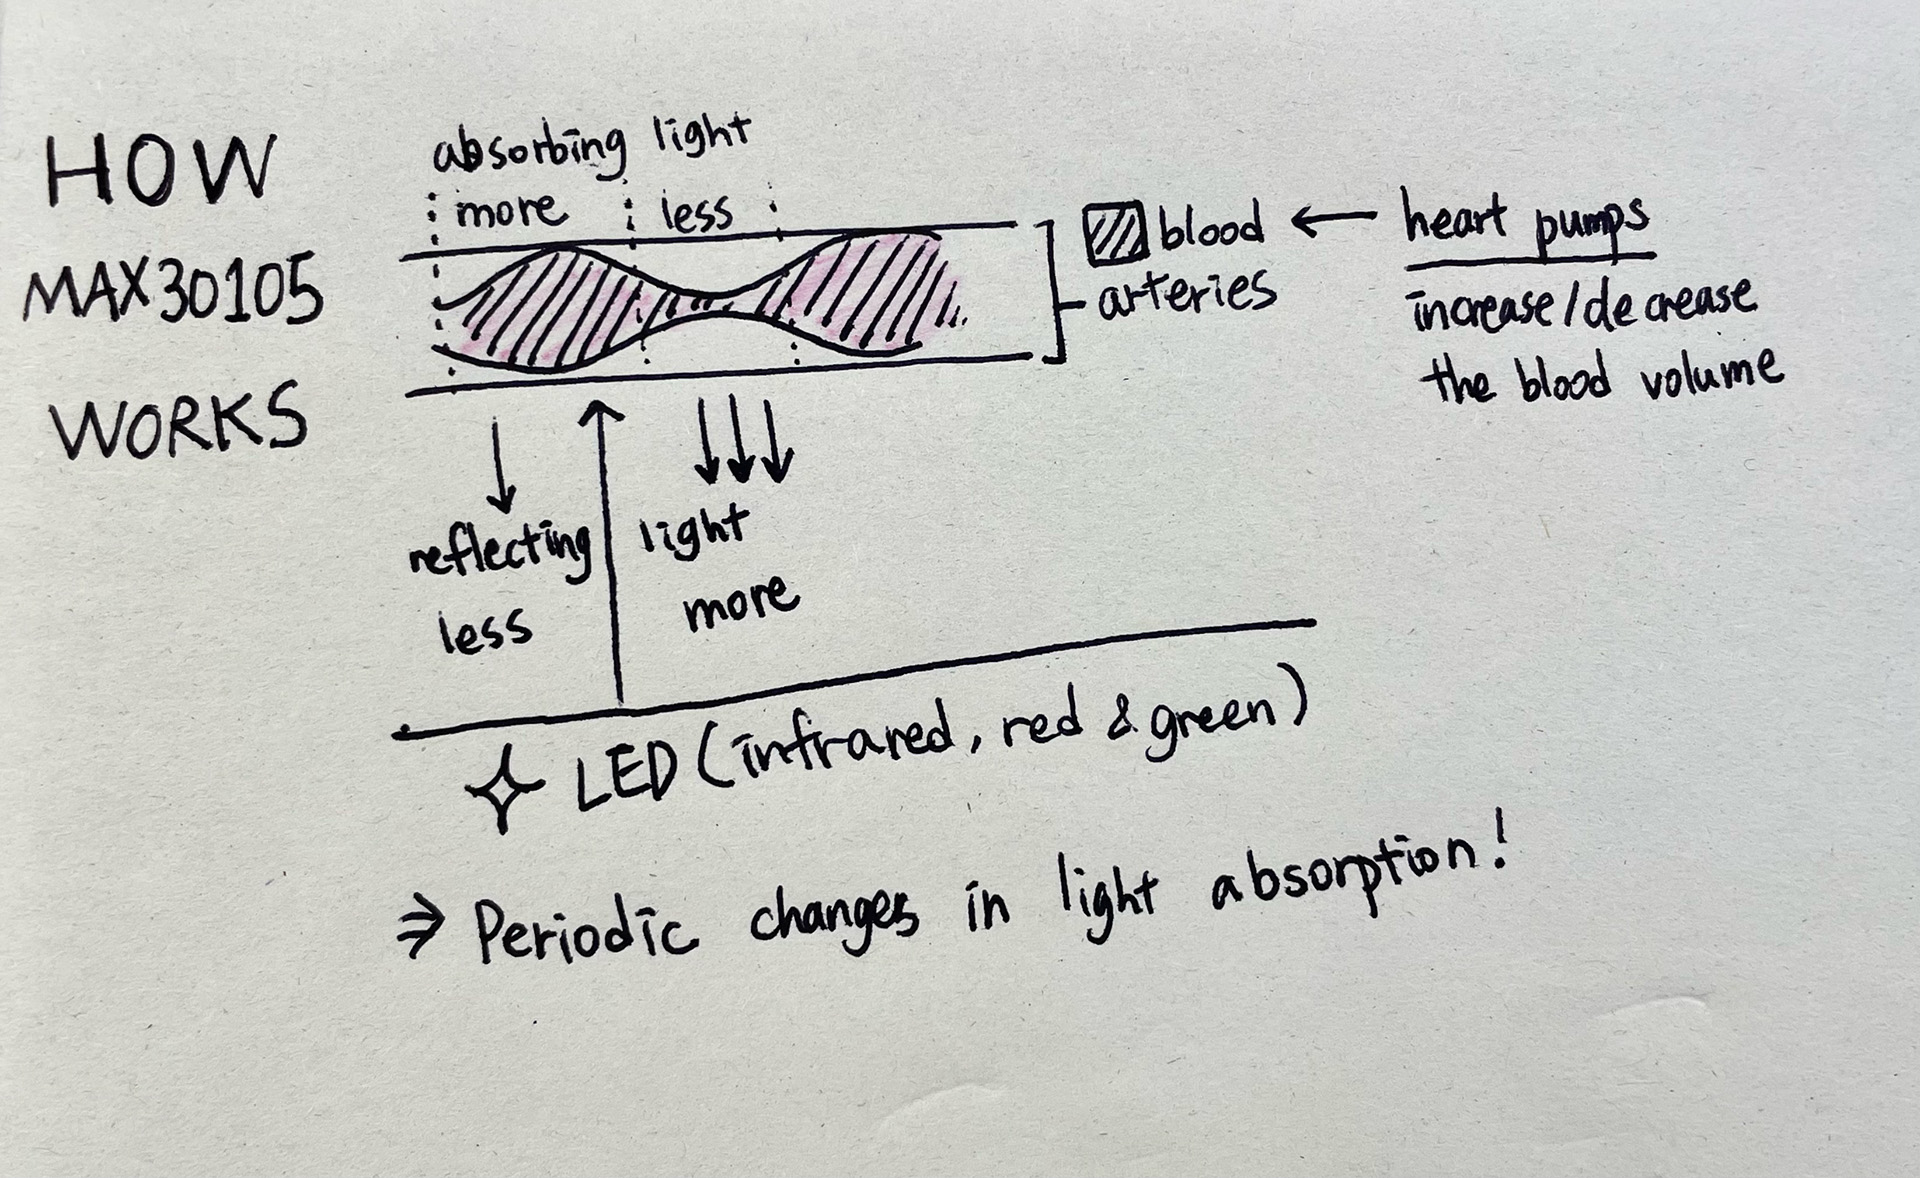 HOW
MAX30105
WORKS
absorbing light
more less
blood ← heart pumps
arteries
increase/decrease
the blood volume
reflecting light
less more
LED (infrared, red & green)
⇒ Periodic changes in light absorption!